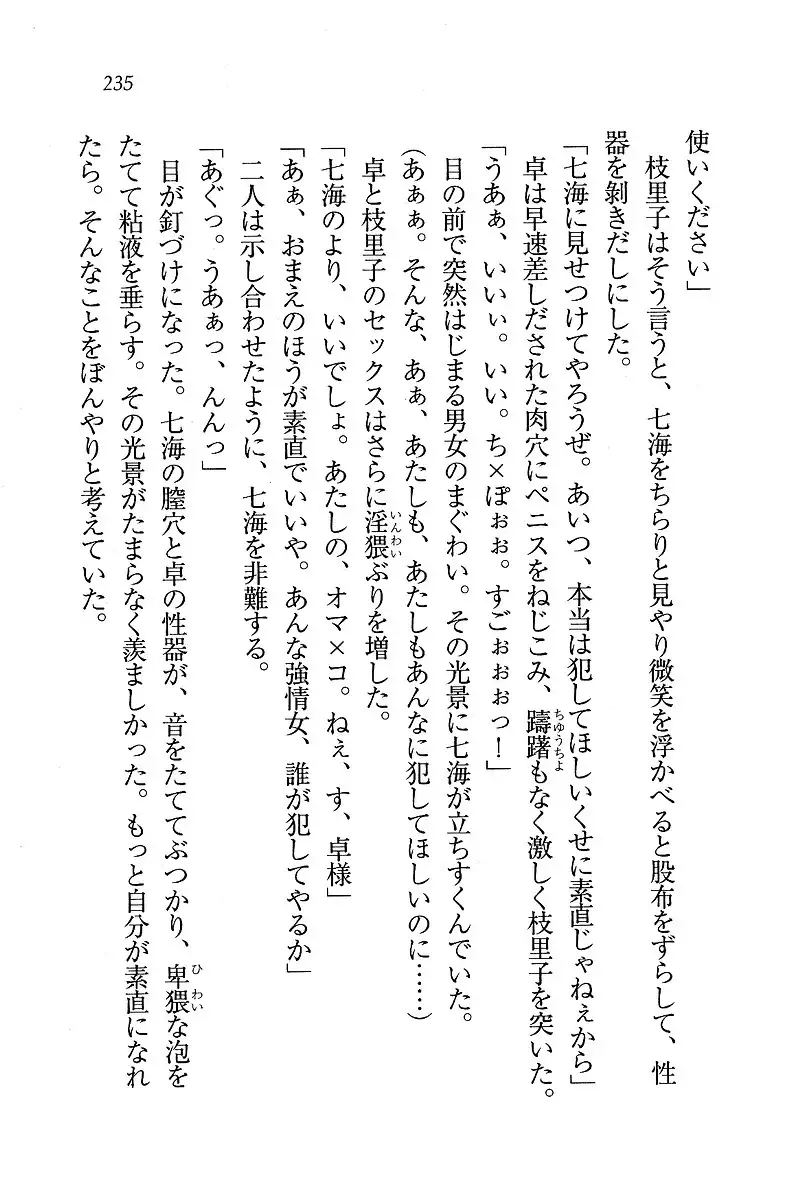 235
使いください」
枝里子はそう言うと、七海をちらりと見やり微笑を浮かべると股布をずらして、性
器を剝きだしにした。
「七海に見せつけてやろうぜ。あいつ、本当は犯してほしいくせに素直じゃねぇから」
ちゆうちよ
卓は早速差しだされた肉穴にペニスをねじこみ、躊躇もなく激しく枝里子を突いた。
「うあぁ、いいぃ。いい。ち×ぽぉぉ。すごぉぉぉっ！」
目の前で突然はじまる男女のまぐわい。その光景に七海が立ちすくんでいた。
（あぁぁ。そんな、あぁ、あたしも、あたしもあんなに犯してほしいのに……）
いんわい
卓と枝里子のセックスはさらに淫猥ぶりを増した。
「七海のより、いいでしょ。あたしの、オマ×コ。ねぇ、す、卓様」
「あぁ、おまえのほうが素直でいいや。あんな強情女、誰が犯してやるか」
二人は示し合わせたように、七海を非難する。
「あぐっ。うあぁっ、んんっ」
ひわい
目が釘づけになった。七海の膣穴と卓の性器が、音をたててぶつかり、卑猥な泡を
たてて粘液を垂らす。その光景がたまらなく羨ましかった。もっと自分が素直になれ
たら。そんなことをぼんやりと考えていた。